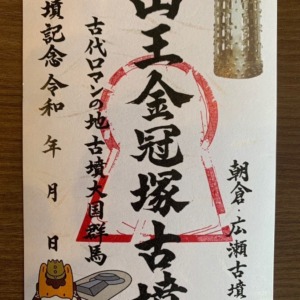 朝倉・広瀬古墳
山王金冠塚古墳
古代ロマンの地 古墳大国群馬
墳記念 令和 年 月 日